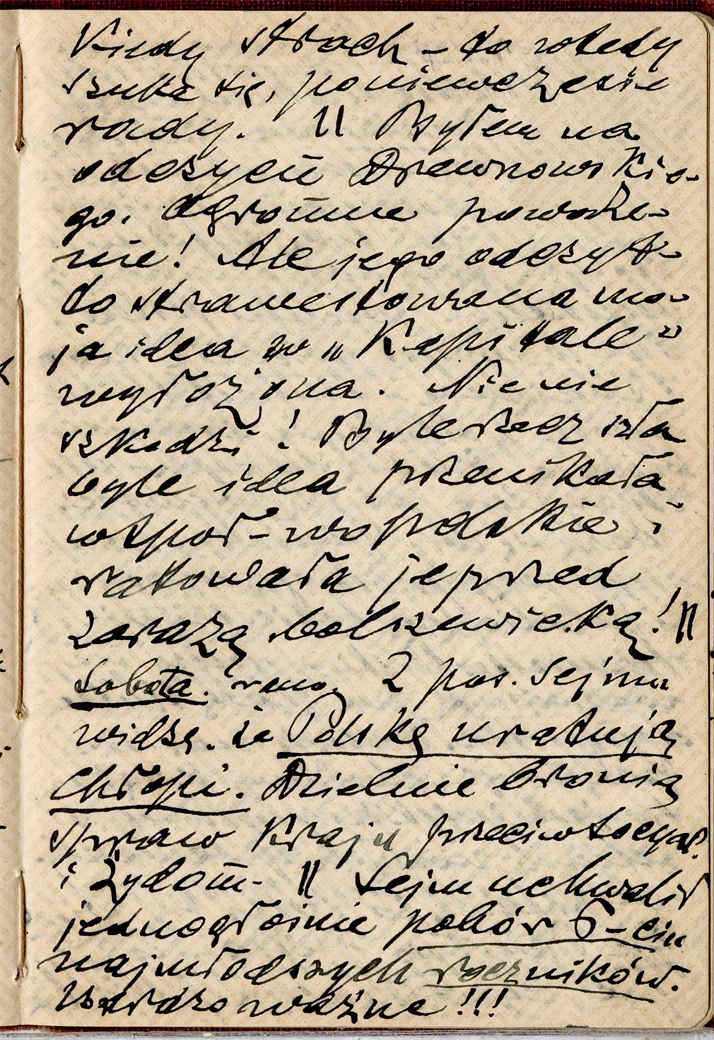 Kiedy strach – to wtedy
szuka się, poniewczasie
rady. || Byłem na
odczycie Drewnowskie-
go. Ogromne powodze-
nie! Ale jego odczyt-
to strawestowana mo-
ja idea w „Kapitale”
wyłożona. Nic nie
szkodzi! Byle rzecz szła
byle idea przenikała
wspoł-wo polskie i
ratowała je przed
zarazą bolszewicką! ||
Sobota. rano. 2 pos. Sejmu
widzę. że Polskę uratują
chłopi. Dzielnie bronią
spraw Kraju przeciw socyal.
i Żydom. || Sejm uchwalił
jednogłośnie pobór 6-ciu
najmłodszych roczników.
Bardzo ważne!!!